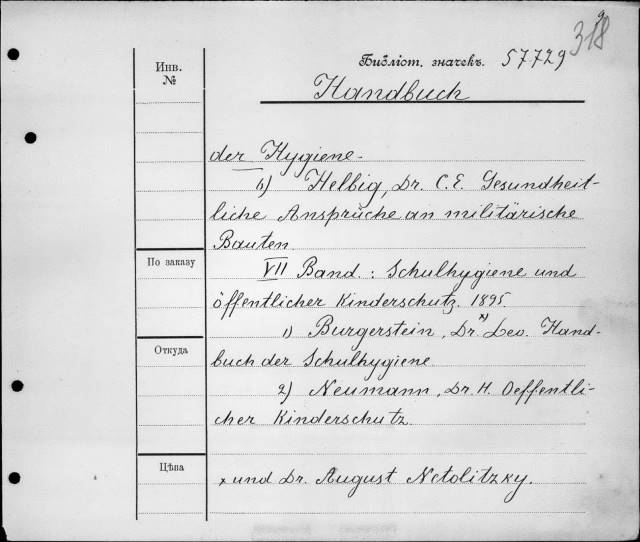 318
9
Инв. №
Библіот. значекъ. 57729
Handbuch
der Hygiene.
6) Helbig, Dr. C. E. Gesundheit-
liche Ansprüche an militärische
Bauten
По заказу
VII Band : Schulhygiene und
öffentlicher Kinderschutz. 1895.
1) Burgerstein, Dr. x) Leo. Hand-
Откуда
buch der Schulhygiene
2) Neumann, Dr. H. Oeffentli-
cher Kinderschutz.
Цѣна
x und Dr. August Netolitzky.